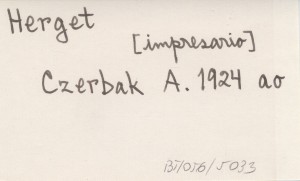 Herget
[impresario]
Czerbak A. 1924 ao
BI/056/5033